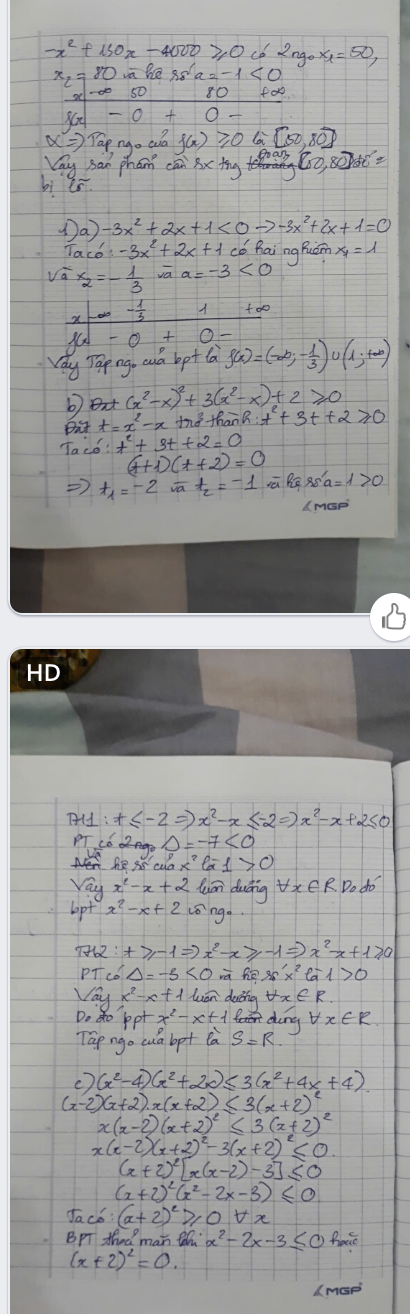 -x² + 130x - 4000 ≥ 0 có 2 ngo x₁ = 50,
x₂ = 80 và hệ số a = -1 < 0
x -∞ 50 80 +∞
f(x) - 0 + 0 -
=> Tập ngo của f(x) ≥ 0 là [50,80]
Vậy sản phẩm cần sx trg đoạn [50,80] để =
bị lỗ.
1) a) -3x² + 2x + 1 < 0 -> -3x² + 2x + 1 = 0
Ta có: -3x² + 2x + 1 có hai nghiệm x₁ = 1
và x₂ = -1/3 và a = -3 < 0
x -∞ -1/3 1 +∞
f(x) - 0 + 0 -
Vậy Tập ngo của bpt là f(x) = (-∞; -1/3) ∪ (1; +∞)
b) (x² - x)² + 3(x² - x) + 2 ≥ 0
Đặt t = x² - x trở thành: t² + 3t + 2 ≥ 0
Ta có: t² + 3t + 2 = 0
(t+1)(t+2) = 0
=> t₁ = -2 và t₂ = -1 và hệ số a = 1 > 0
MGP
HD
TH1: t ≤ -2 => x² - x ≤ -2 => x² - x + 2 ≤ 0
PT có Δ = -7 < 0
Và hệ số của x² là 1 > 0
Vậy x² - x + 2 luôn dương ∀x ∈ R. Do đó
bpt x² - x + 2 vô ngo.
TH2: t ≥ -1 => x² - x ≥ -1 => x² - x + 1 ≥ 0
PT có Δ = -3 < 0 và hệ số x² là 1 > 0
Vậy x² - x + 1 luôn dương ∀x ∈ R.
Do đó ppt x² - x + 1 đúng ∀x ∈ R.
Tập ngo của bpt là S = R.
c) (x² - 4)(x² + 2x) ≤ 3(x² + 4x + 4)
(x-2)(x+2).x(x+2) ≤ 3(x+2)²
x(x-2)(x+2)² ≤ 3(x+2)²
x(x-2)(x+2)² - 3(x+2)² ≤ 0
(x+2)² [x(x-2) - 3] ≤ 0
(x+2)² (x² - 2x - 3) ≤ 0
Ta có: (x+2)² ≥ 0 ∀x
BPT thoả mãn khi x² - 2x - 3 ≤ 0 hoặc
(x+2)² = 0.
MGP